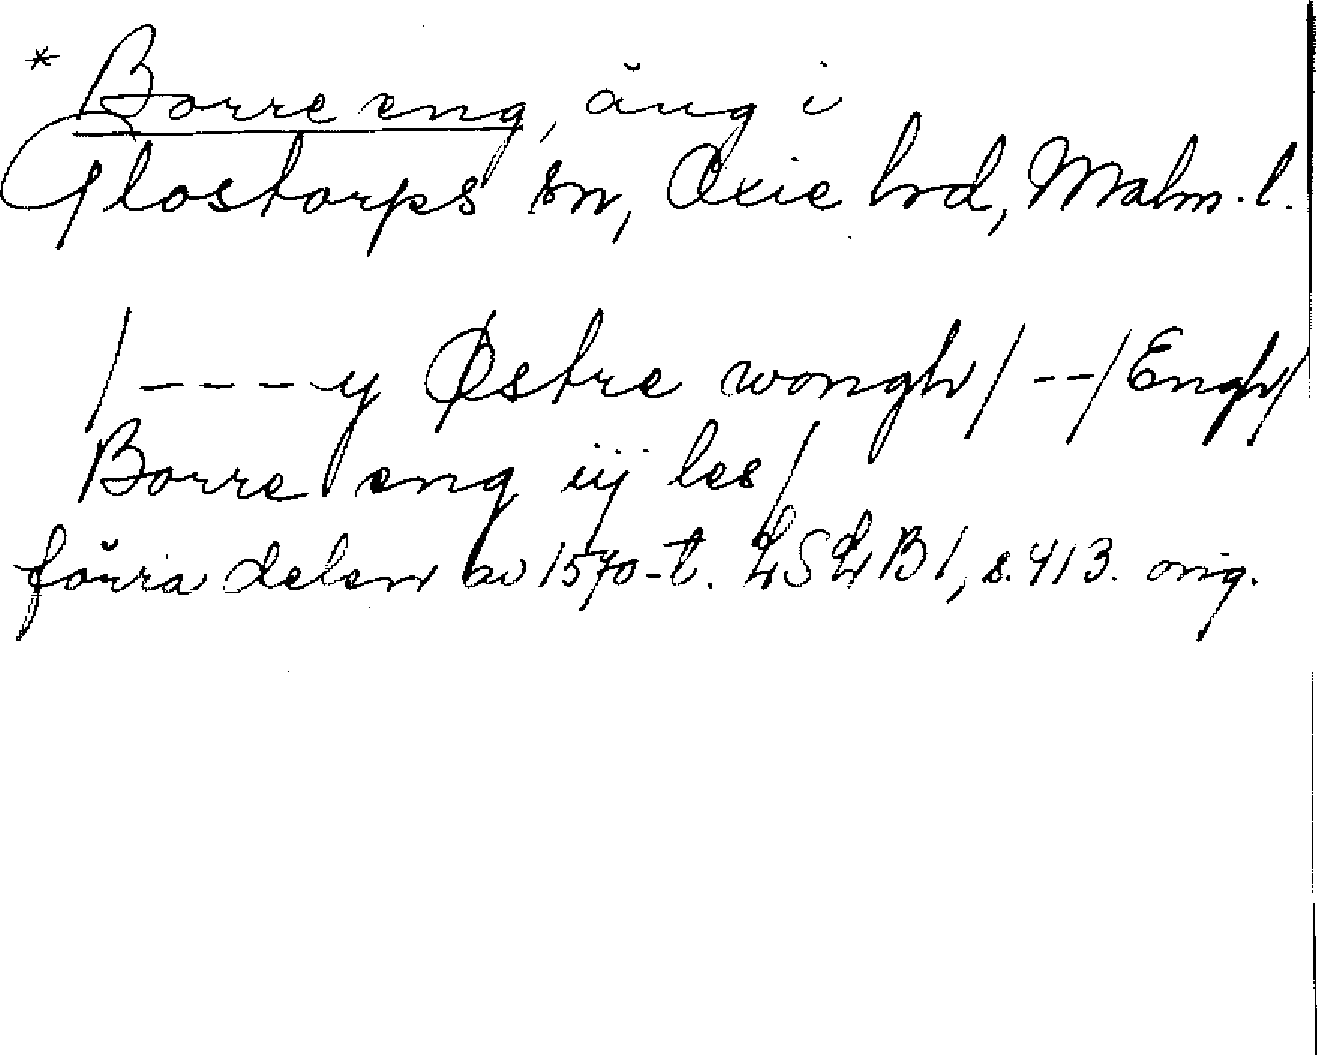 * Borre eng, äng i
Glostorps sn, Oxie hd, Malm. l.
/----y Østre wongh/--/Engh/
Borre eng iij les/
förra delen av 1570-t. LSLB1, s. 413. orig.